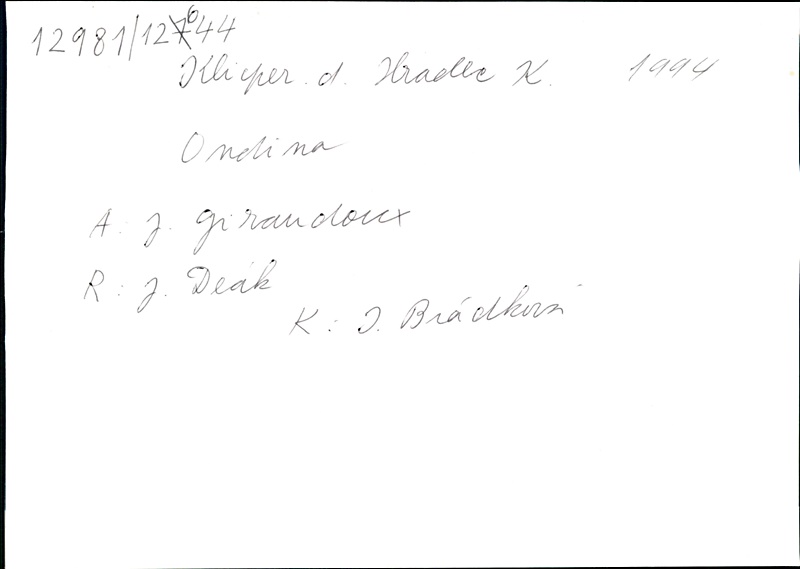 12981/12644
Klicper. d. Hradec K. 1994
Ondina
A: J. Giraudoux
R: J. Deák
K: I. Brádková